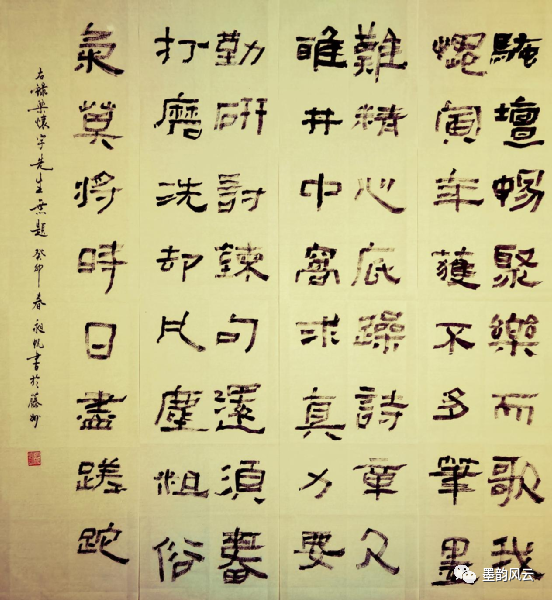 騷壇暢聚樂而歌我
愧寅年獲不多筆墨
難精心底躁詩章久
唯井中窩求真力要
勤研討鍊句還須
打磨洗却凡塵粗俗
氣莫將時日盡蹉跎
右錄梁懷宇先生無題 癸卯春 帆書於藤州
墨韵风云